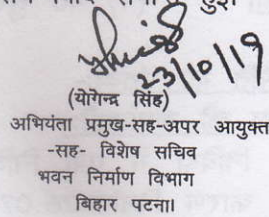 23/10/19
(योगेन्द्र सिंह)
अभियंता प्रमुख-सह-अपर आयुक्त
-सह- विशेष सचिव
भवन निर्माण विभाग
बिहार पटना।